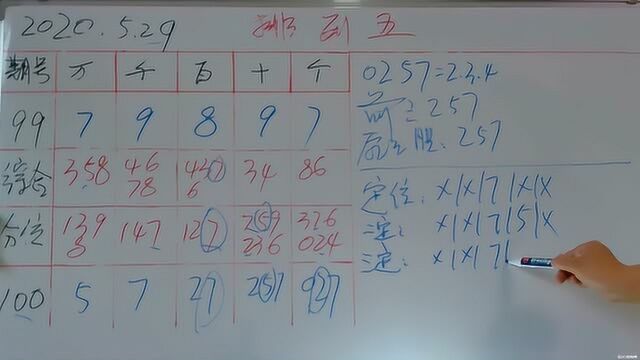 2020.5.29 排列五
期号 万 千 百 十 个
99 7 9 8 9 7
综合 358 46 427 34 86
78 6
分位 139 147 127 259 326
8 236 024
100 5 7 27 257 927
0257=2.3.4
前二257
后三胆:257
定位:X|X|7|X|X
二定:X|X|7|5|X
二定:X|X|7|